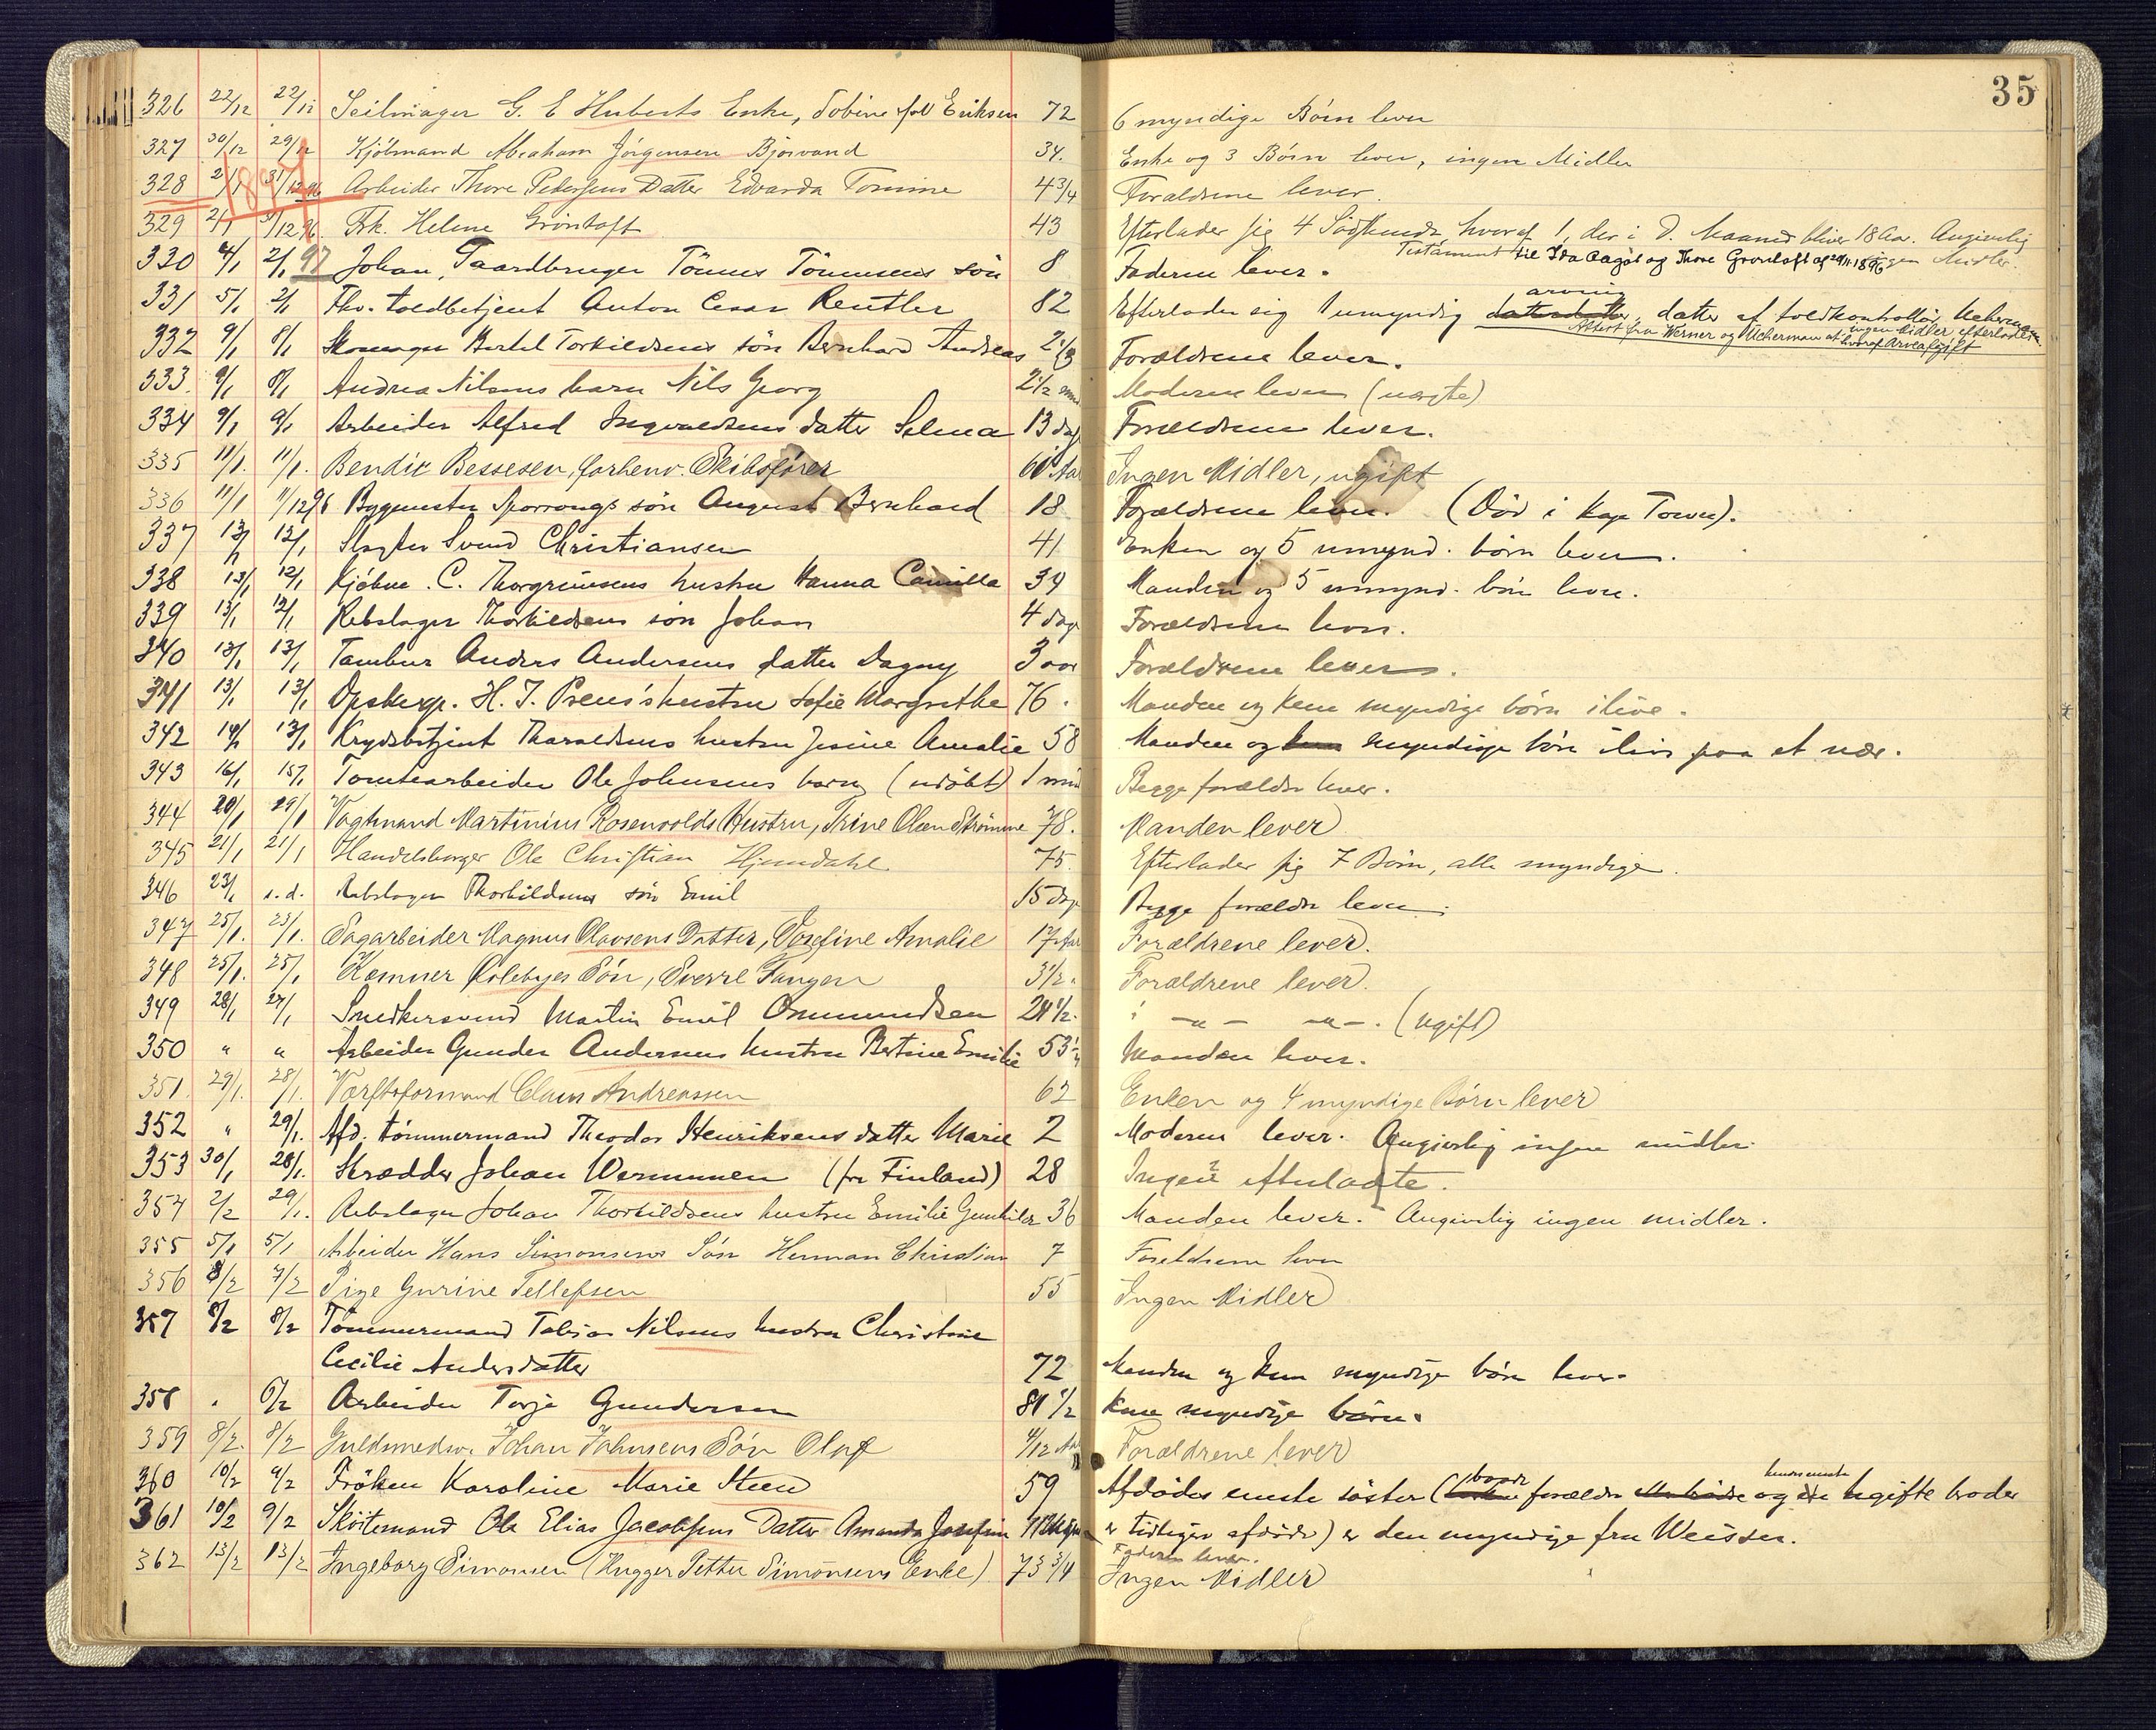 35
326 22/12 22/12 Seilmager G. E Huberts Enke, Tobine født Eriksen 72 6 myndige Börn lever
327 30/12 29/12 Kjöbmand Abraham Jörgensen Bjorvand 34. Enke og 3 Börn lever, ingen Midler
1897
328 2/1 31/12 96 Arbeider Thore Pedersens Datter Edvarda Tomine 4 3/4 Forældrene lever.
329 2/1 31/12 96. Frk. Helene Grönloft 43 Efterlader sig 4 Södskende hvoraf 1, der i D. Maaned bliver 18 Aar. Angivelig ingen Midler.
Testament til Ida Aagot og Thore Gronloft af 29/11-1896
330 4/1 2/1 97 Johan, Gaardbruger Tönnes Tönnesens sön 8 Faderen lever.
331 5/1 2/1 Fhv. toldbetjent Anton Cesar Reutler 82 Efterlader sig 1 umyndig datterdatter, datter af toldkontrollör Ucherman
arving
ingen Midler efterlader
Attest fra Werner og Ucherman at hvoraf Arveafgift
332 9/1 8/1 Skomager Bertel Torkildsens sön Bernhard Andreas 2 1/3 Forældrene lever.
333. 9/1 8/1 Andrea Nilsens barn Nils Georg 2 1/2 mnd Moderen lever (uægte)
334 9/1 9/1 Arbeider Alfred Ingvaldsens datter Selma 13 dage Forældrene lever.
335 11/1. 11/1. Bendix Bessesen, forhenv. Skibsfører 60 Aar Ingen Midler, ugift
336 11/1 11/12 96 Bygmester Sporrongs sön August Bernhard 18 Forældrene lever. (Död i Kap Town).
337 13/1 12/1 Slagter Svend Christiansen 41 Enken og 5 umynd. börn lever.
338 13/1 12/1 Kjöbm. C. Thorgrimsens hustru Hanna Camilla 34 Manden og 5 umynd. börn lever.
339 13/1 12/1 Rebslager Thorkildsens sön Johan 4 dage Forældrene lever.
340 13/1 13/1 Tambur Anders Andersens datter Dagny 3 aar Forældrene lever.
341 13/1 13/1 Opsberge. H. J. Preus's hustru Sofie Margrethe 76. Manden og kun myndige börn ilive.
342 14/1 13/1 Krydsbetjent Tharaldsens hustru Jesine Amalie 58 Manden og kun myndige börn ilive paa et nær.
343 16/1 15/1 Tomtearbeider Ole Johnsens barn (udöbt) 1 mnd Begge forældre lever.
344 20/1 19/1 Vagtmand Martinius Rosenvolds Hustru, Trine Olsen Strömme 78. Manden lever
345 21/1 21/1 Handelsborger Ole Christian Hjemdahl 75. Efterlader sig 7 Börn, alle myndige.
346 23/1 s.d. Rebslager Thorkildsens sön Emil 15 dage Begge forældre lever.
347 25/1. 23/1. Sagarbeider Magnus Olavsens Datter, Josefine Amalie 17 Aar Forældrene lever.
348 25/1. 25/1 Kæmner Holebyes Sön, Sverre Fangen 3 1/2. Forældrene lever.
349 28/1 27/1 Snedkersvend Martin Emil Ommundsen 24 1/2. — " — — " —. (ugift)
350 " " Arbeider Gunder Andersens hustru Bertine Emilie 53 1/4 Manden lever.
351. 29/1. 28/1. Værftsformand Claus Andreassen 62 Enken og 4 myndige Börn lever
352 " 29/1. Afd. tömmermand Theodor Henriksens datter Marie 2 Moderen lever. Angivelig ingen midler.
353 30/1 28/1. Skrædder Johan Wernunen (fra Finland) 28 Ingen efterladte.
354 2/2 29/1. Rebslager Johan Thorkildsens hustru Emilie Gunhilda 36 Manden lever. Angivelig ingen midler.
355 5/1 5/1 Arbeider Hans Simonsens Sön Herman Christian 7 Forældrene lever
356 8/2 7/2 Pige Gurine Tellefsen 55 Ingen Midler
357 8/2 8/2 Tömmermand Tobias Nilsens hustru Christine
Cecilie Andersdatter 72 Manden og kun myndige börn lever.
358 . 6/2 Arbeider Torje Gundersen 81 1/2 Kun myndige börn.
359 8/2. 8/2 Guldsmedsv. Johan Johnsens Sön Olaf 4/12 Aar Forældrene lever
360 10/2 9/2 Fröken Karoline Marie Steen 59 Afdödes eneste söster (begge forældre og ugifte broder
baade hendes eneste
361 10/2 9/2 Sköitemand Ole Elias Jacobsens Datter Amanda Josefine er tidligere afdöde) er den myndige fru Weisser.
Faderen lever.
362 13/2 13/2 Ingeborg Simonsen (Hugger Petter Simonsens Enke) 73 3/4 Ingen Midler